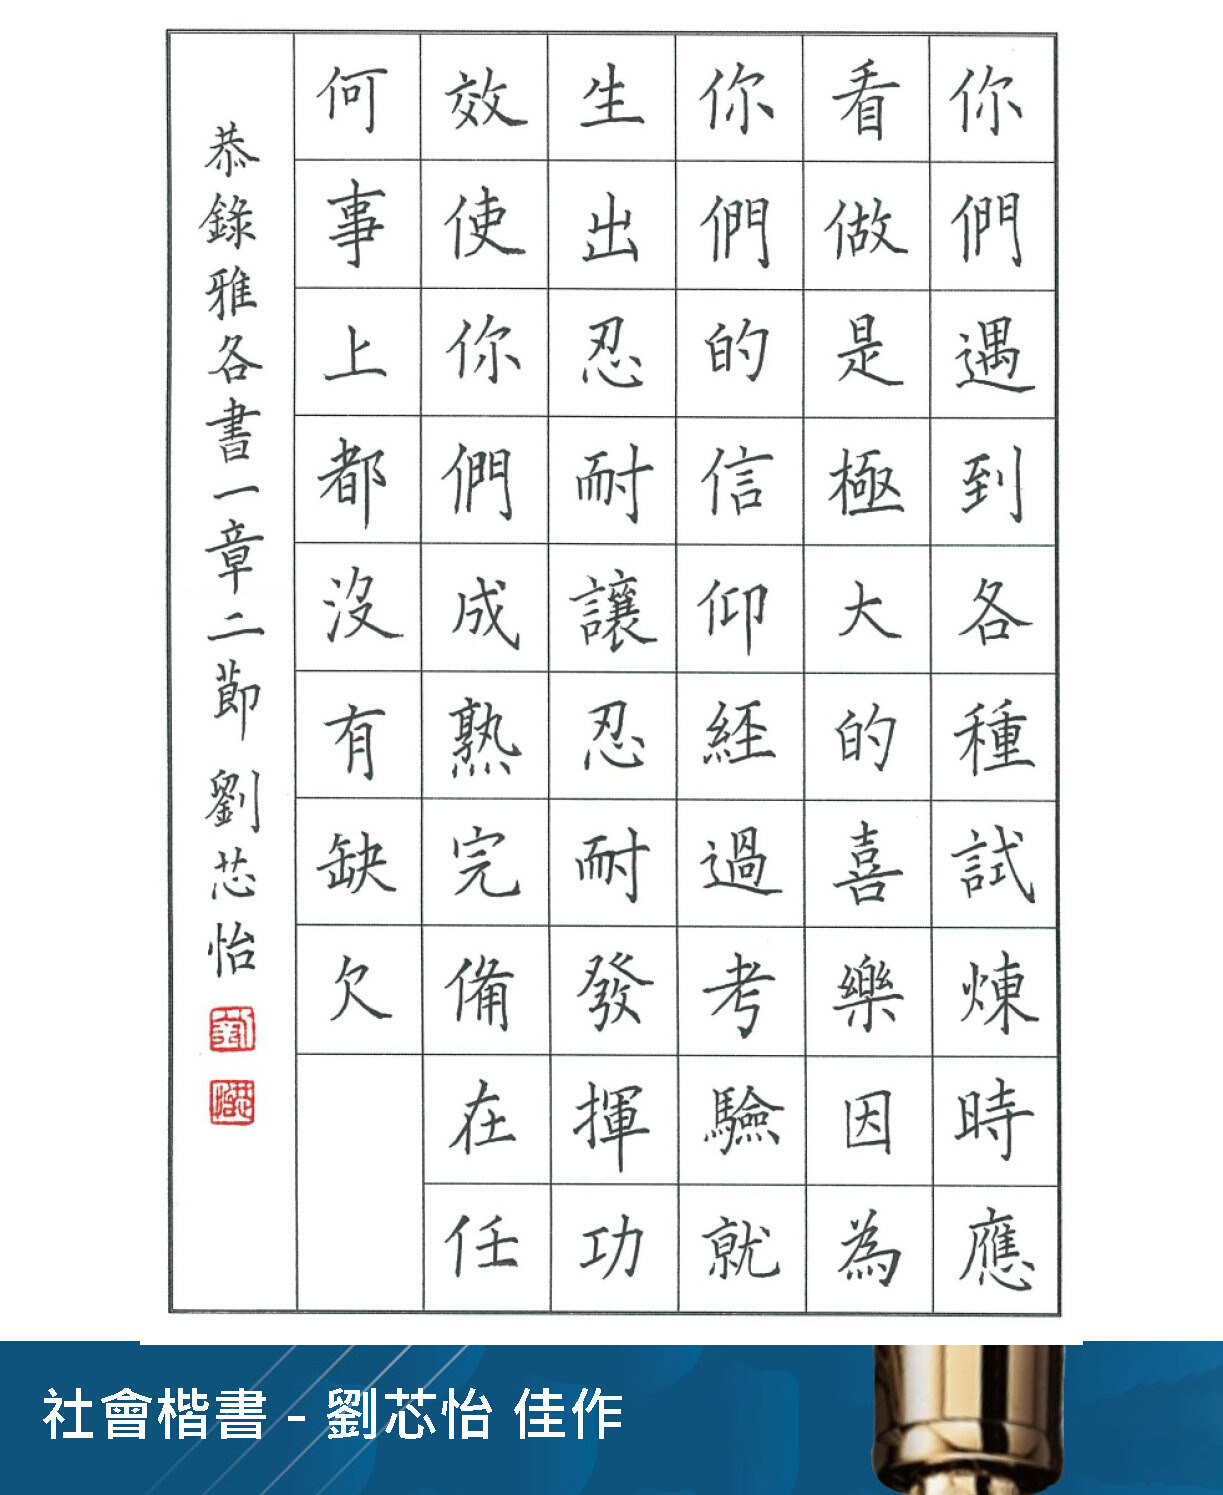 你們遇到各種試煉時應
看做是極大的喜樂因為
你們的信仰經過考驗就
生出忍耐讓忍耐發揮功
效使你們成熟完備在任
何事上都沒有缺欠
恭錄雅各書一章二節 劉芯怡
社會楷書 - 劉芯怡 佳作